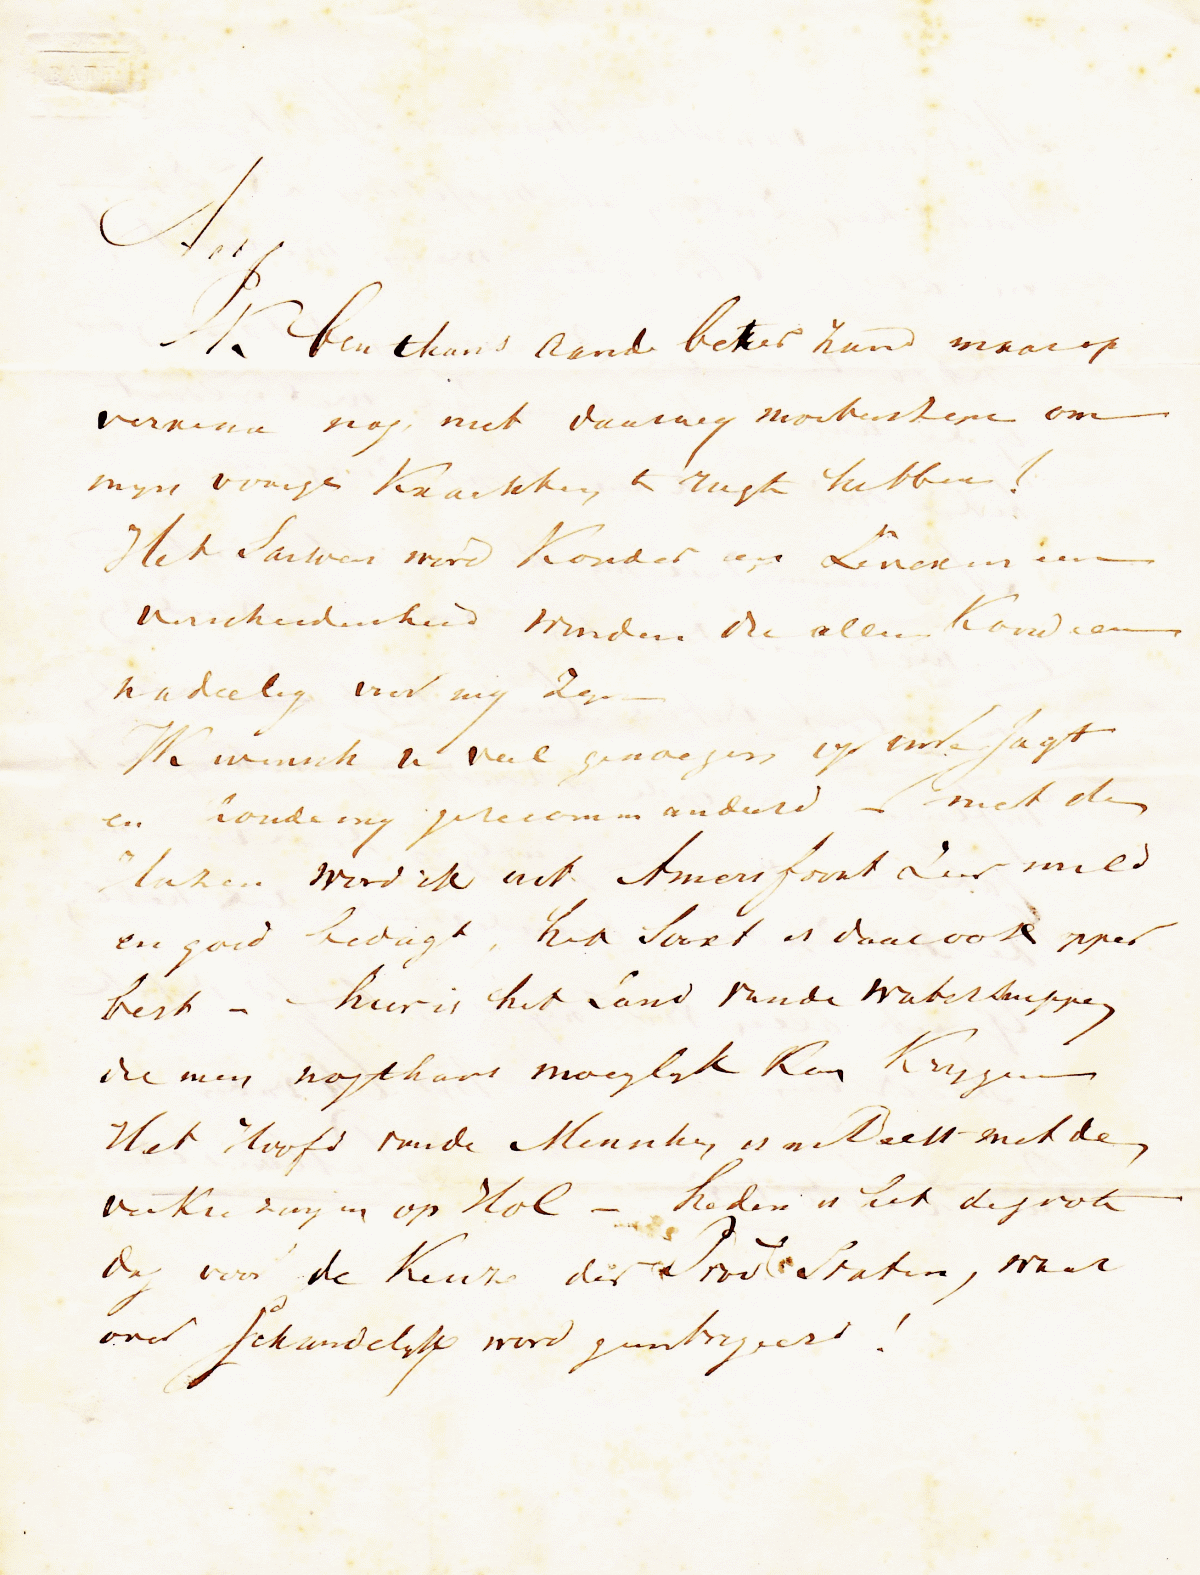 Ik ben thans aande beter hand maar op
nog niet daarmeg om
myn vorige Krachten te rugte hebben!
Het word Kouder en
verscheidenheid winden die allen Koud en
nadeelig voor my Zyn
IK wensch u veel genoegen op uwe Jagt
en houde my gerecommandeerd – met de
Hazen word ik uit Amersfoort Zeer mild
en goed bedagt, het Soort is daar ook opper
best – hier is het Land vande watersnippen
die men nogthans moeylyk Kan Krygen
Het Hoofd vande Menschen is in Deelt met de
verkiezingen op Hol – heden is het de groote
dag voor de Keuze der Prov Staten, waar
over schandelyk word geintrigeerd!